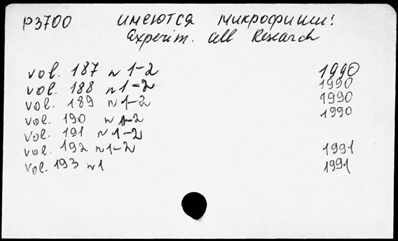 P3700 имеются микрофиши!
Experim. Cell Research
vol. 187 n 1-2 1990
vol. 188 n 1-2 1990
vol. 189 n 1-2 1990
vol. 190 n 1-2 1990
vol. 191 n 1-2
vol. 192 n 1-2 1991
vol. 193 n 1 1991